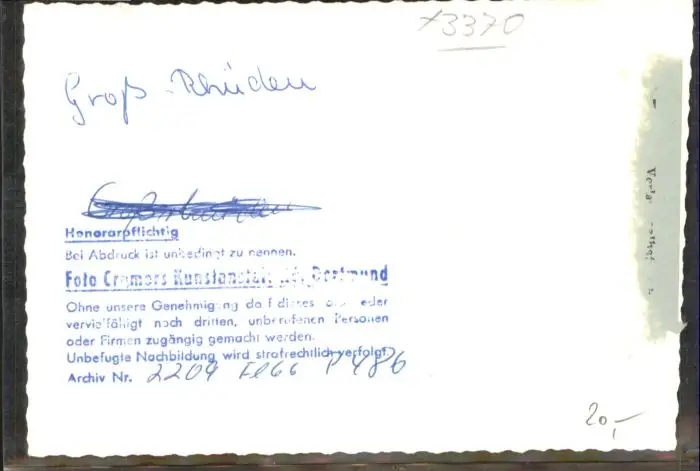 x3370
Groß-Rhüden
Honorarpflichtig
Bei Abdruck ist unbedingt zu nennen.
Foto Cramers Kunstanstalt KG, Dortmund
Ohne unsere Genehmigung darf dieses weder
vervielfältigt noch dritten, unberufenen Personen
oder Firmen zugängig gemacht werden.
Unbefugte Nachbildung wird strafrechtlich verfolgt.
Archiv Nr. 2204
20,-